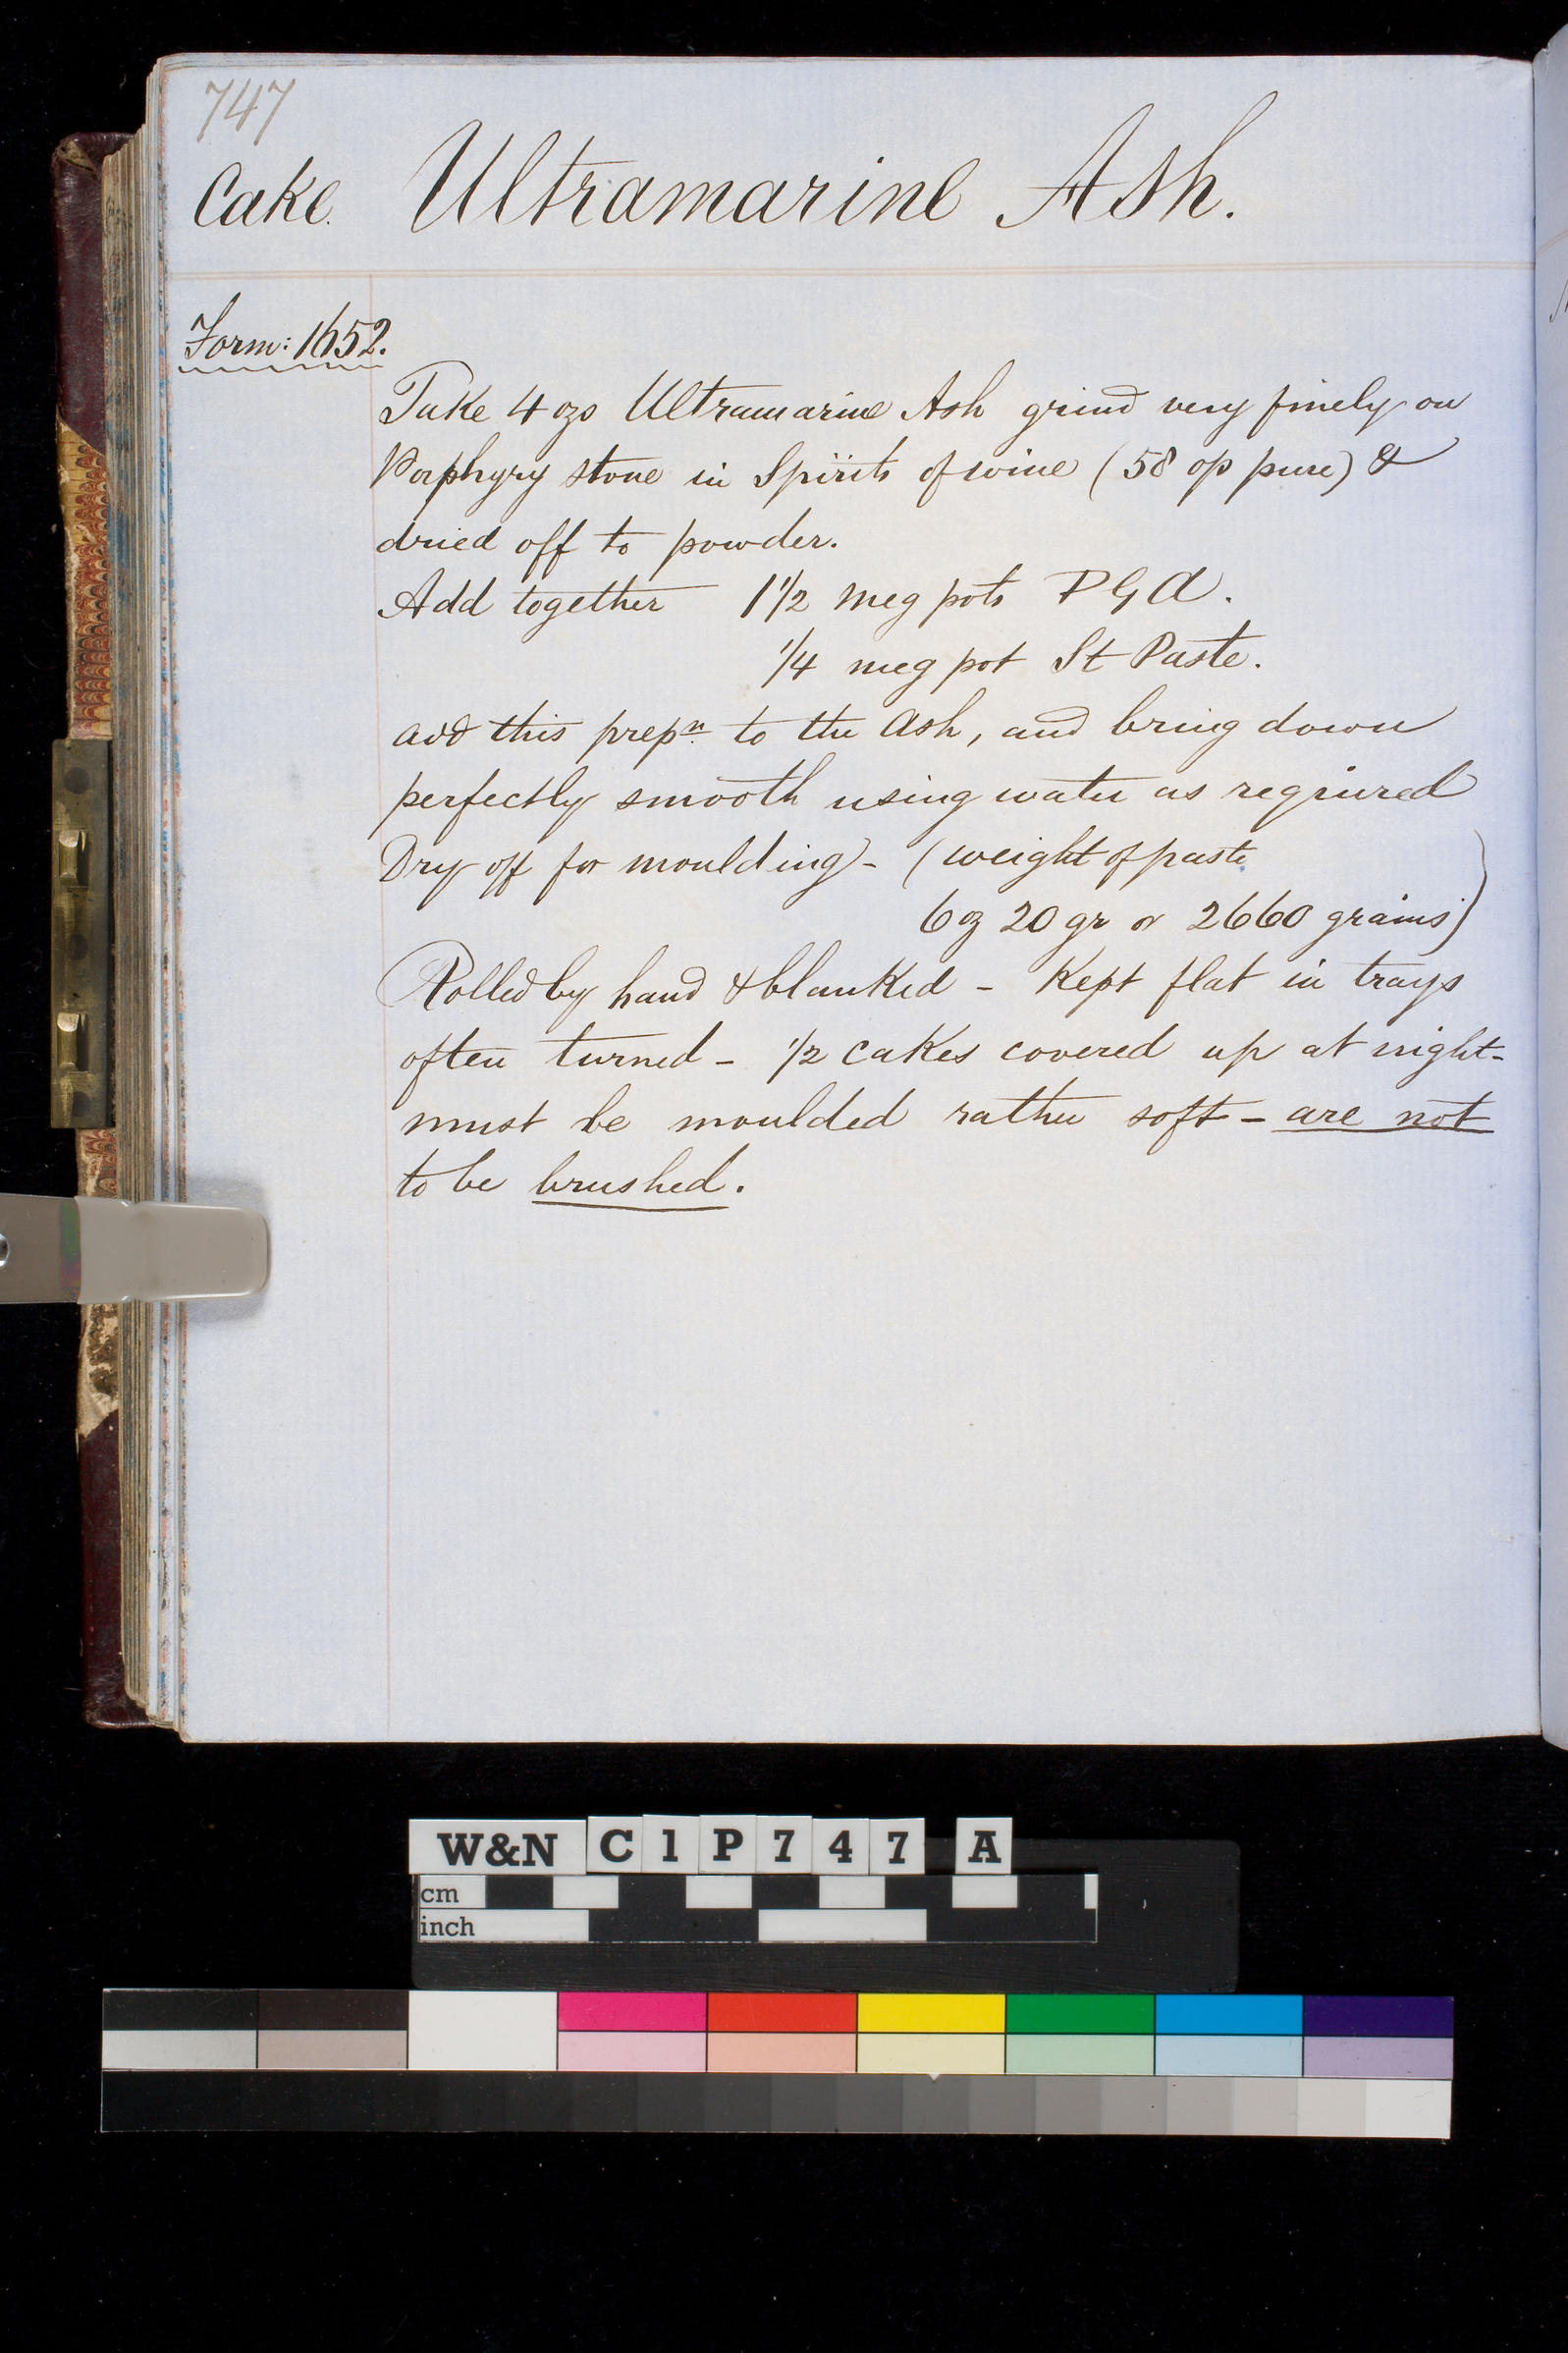 747
Cake. Ultramarine Ash.
Form: 1652.
Take 4 ozs Ultramarine Ash grind very finely on
Porphyry stone in Spirits of wine (58 op pure) &
dried off to powder.
Add together 1 1/2 meg pots P G A.
1/4 meg pot St Paste.
add this prepn to the Ash, and bring down
perfectly smooth using water as required
Dry off for moulding - (weight of paste
6 oz 20 gr or 2660 grains)
Rolled by hand & blanked - Kept flat in trays
often turned - 1/2 cakes covered up at night -
must be moulded rather soft - are not
to be brushed.
W&N C1P747 A
cm
inch